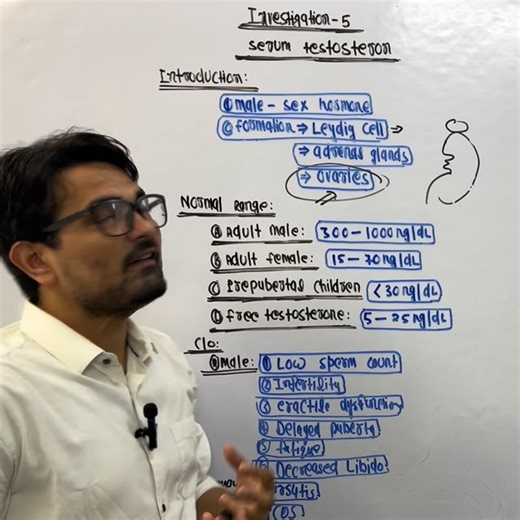 Investigation-5
serum testosteron
Introduction:
① male - sex hormone
② formation ⇒ Leydig cell ⇒
⇒ adrenal glands
⇒ ovaries
Normal Range:
ⓐ Adult male: 300-1000ng/dL
ⓑ Adult female: 15-70ng/dL
ⓒ Prepubertal children <30ng/dL
ⓓ free testosterone: 5-25ng/dL
C/O:
ⓐ male: ① Low sperm count
② Infertility
③ erectile dysfunction
④ Delayed puberty
⑤ fatigue
⑥ Decreased Libido